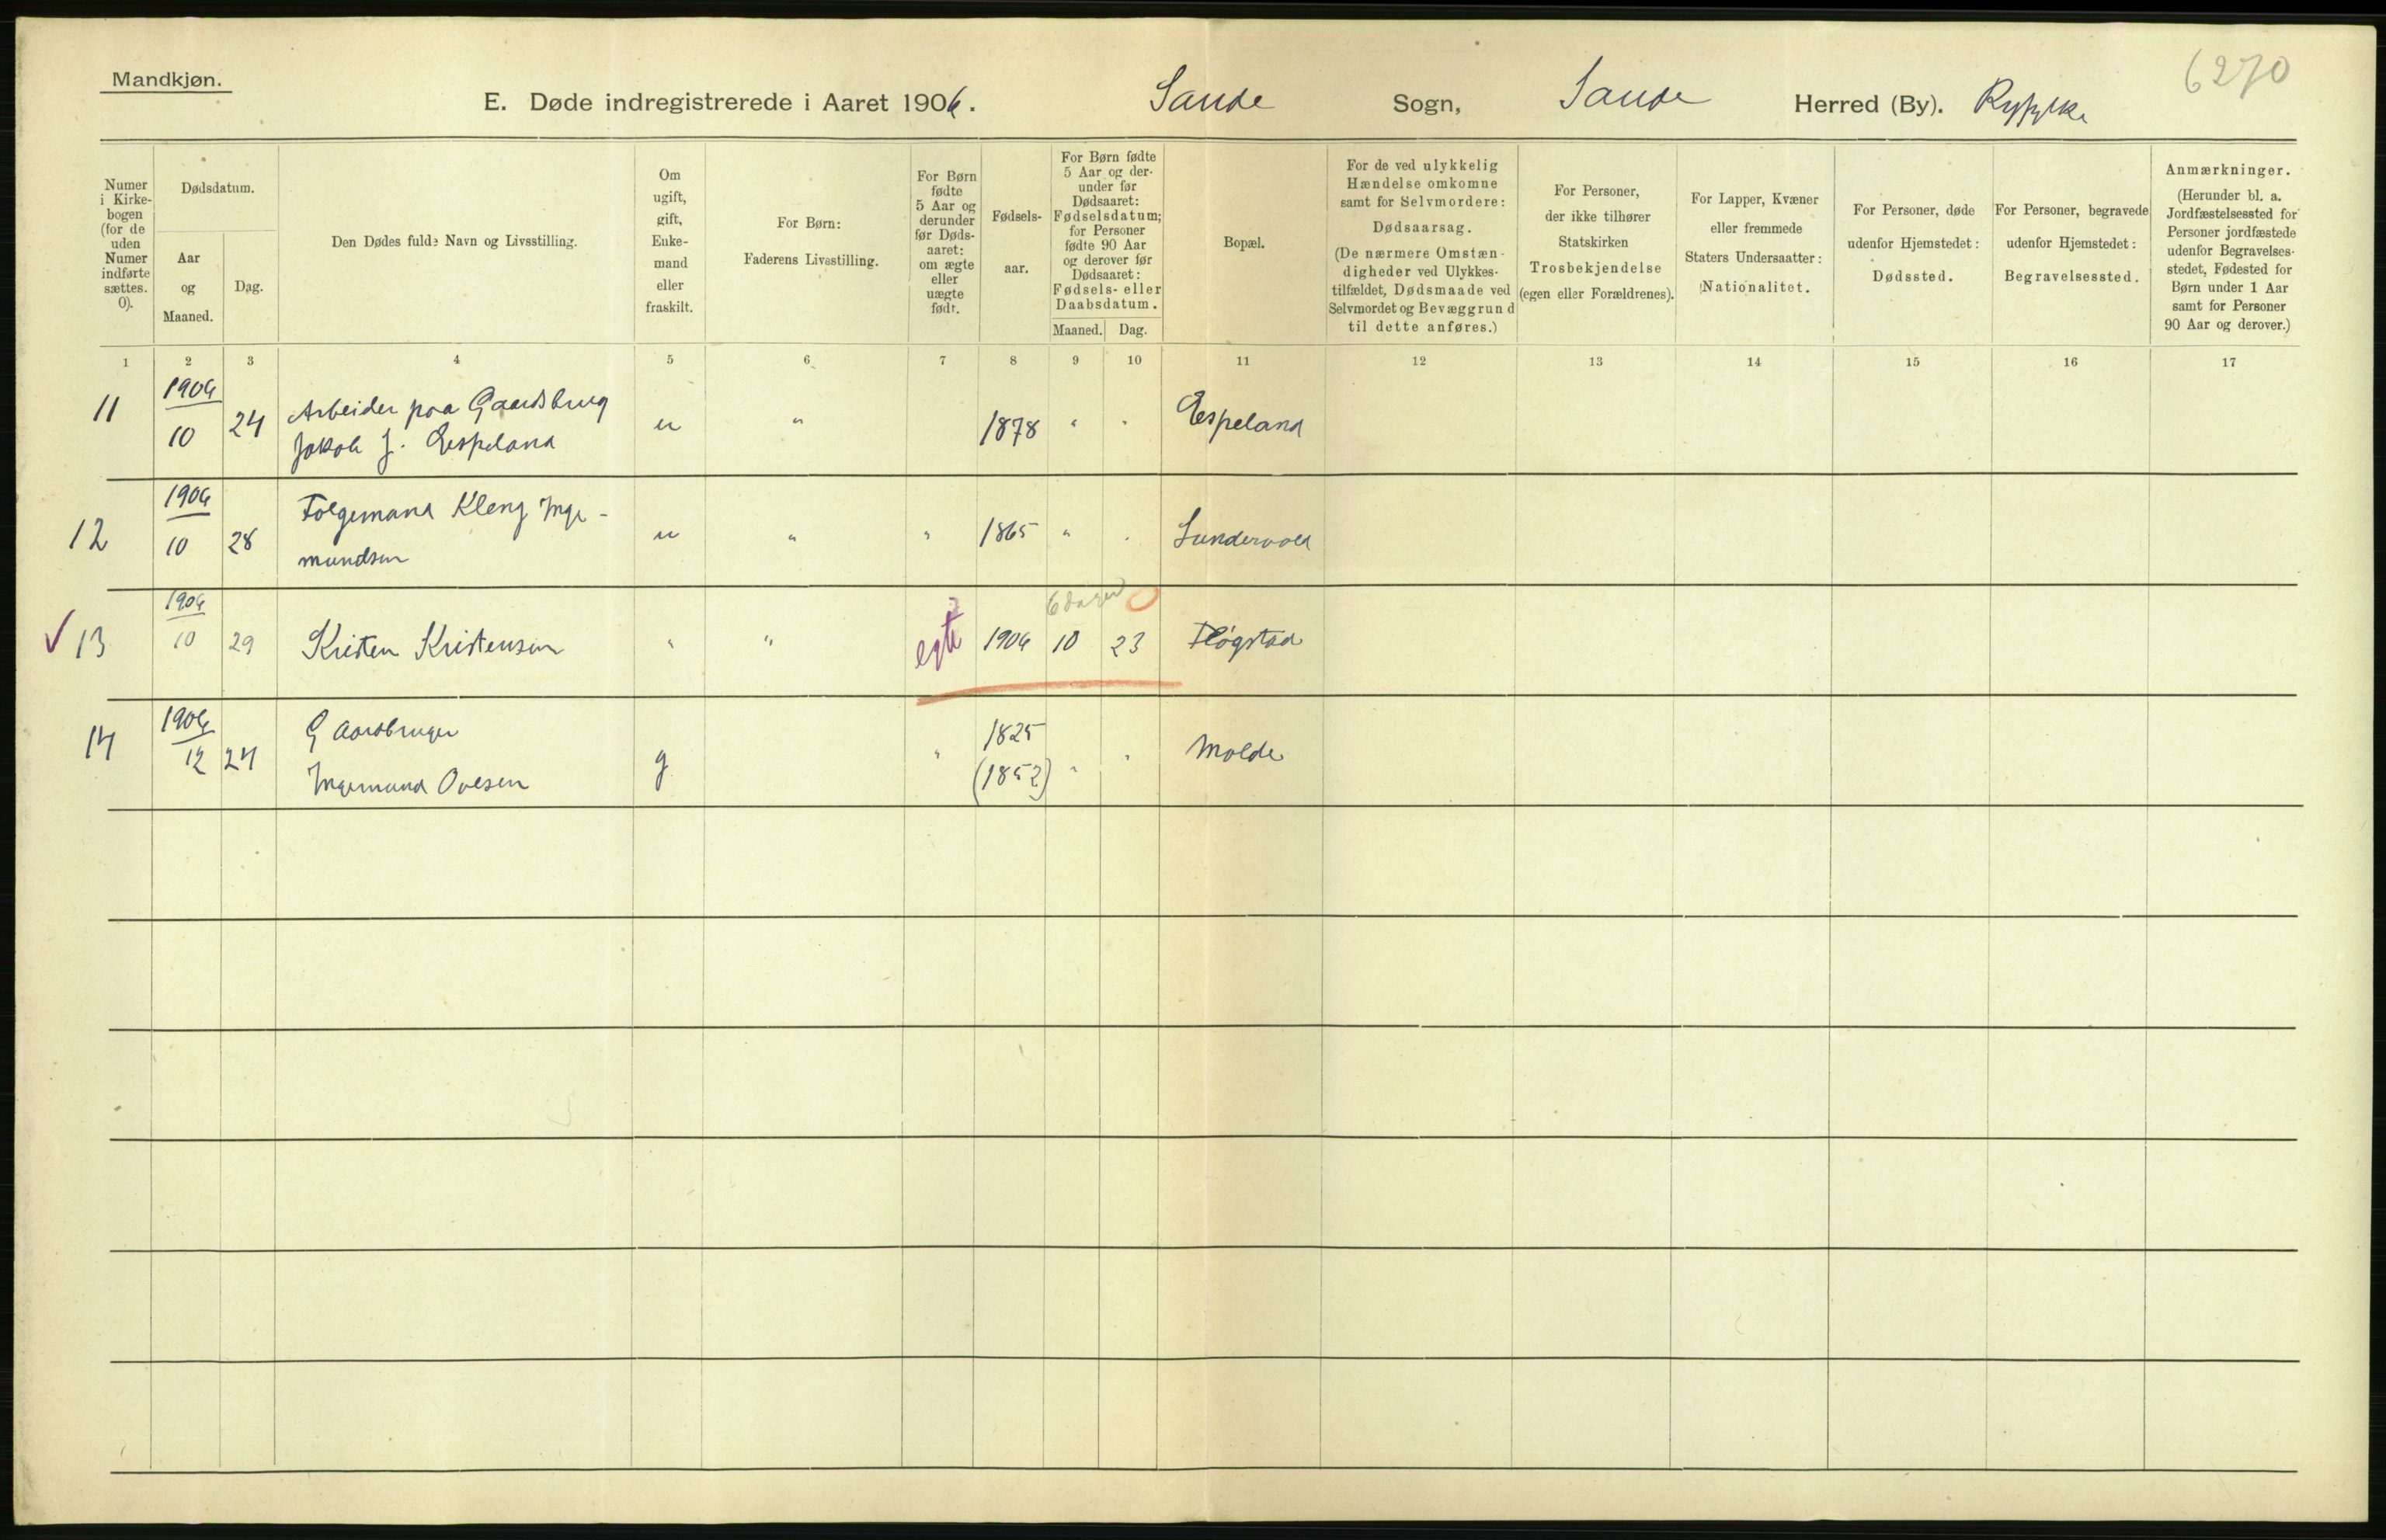 Mandkjøn.
6270
E. Døde indregistrerede i Aaret 1906. Sande Sogn, Sande Herred (By). Ryfylke
Numer i Kirke-bogen (for de uden Numer indførte sættes. 0).
Dødsdatum.
Aar og Maaned.
Dag.
Den Dødes fulde Navn og Livsstilling.
Om ugift, gift, Enke-mand eller fraskilt.
For Børn: Faderens Livsstilling.
For Børn fødte 5 Aar og derunder før Døds-aaret: om ægte eller uægte født.
Fødsels-aar.
For Børn fødte 5 Aar og der-under før Dødsaaret: Fødselsdatum; for Personer fødte 90 Aar og derover før Dødsaaret: Fødsels- eller Daabsdatum.
Maaned. Dag.
Bopæl.
For de ved ulykkelig Hændelse omkomne samt for Selvmordere: Dødsaarsag. (De nærmere Omstæn-digheder ved Ulykkes-tilfældet, Dødsmaade ved Selvmordet og Bevæggrund til dette anføres.)
For Personer, der ikke tilhører Statskirken Trosbekjendelse (egen eller Forældrenes).
For Lapper, Kvæner eller fremmede Staters Undersaatter: Nationalitet.
For Personer, døde udenfor Hjemstedet: Dødssted.
For Personer, begravede udenfor Hjemstedet: Begravelsessted.
Anmærkninger. (Herunder bl. a. Jordfæstelsessted for Personer jordfæstede udenfor Begravelses-stedet, Fødested for Børn under 1 Aar samt for Personer 90 Aar og derover.)
1 2 3 4 5 6 7 8 9 10 11 12 13 14 15 16 17
1906
11 10 24 Arbeider paa Gaardsbrug
Jakob J. Espeland u " 1878 " " Espeland
1906
12 10 28 Folgemand Kleng Inge-
mundsen u " " 1865 " " Sundervold
1906 6 dager 0
✓ 13 10 29 Kristen Kristensen " " egte 1906 10 23 Fløgstad
1906
14 12 24 Gaardbruger
Ingemund Ovesen g " 1825 (1852) " " Molde